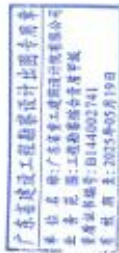 广东省建设工程勘察设计出图专用章
单位名称:广东省重工建筑设计院有限公司
业务范围:工程勘察综合资质甲级
资质证书编号:B144002741
有效期至:2025年05月19日